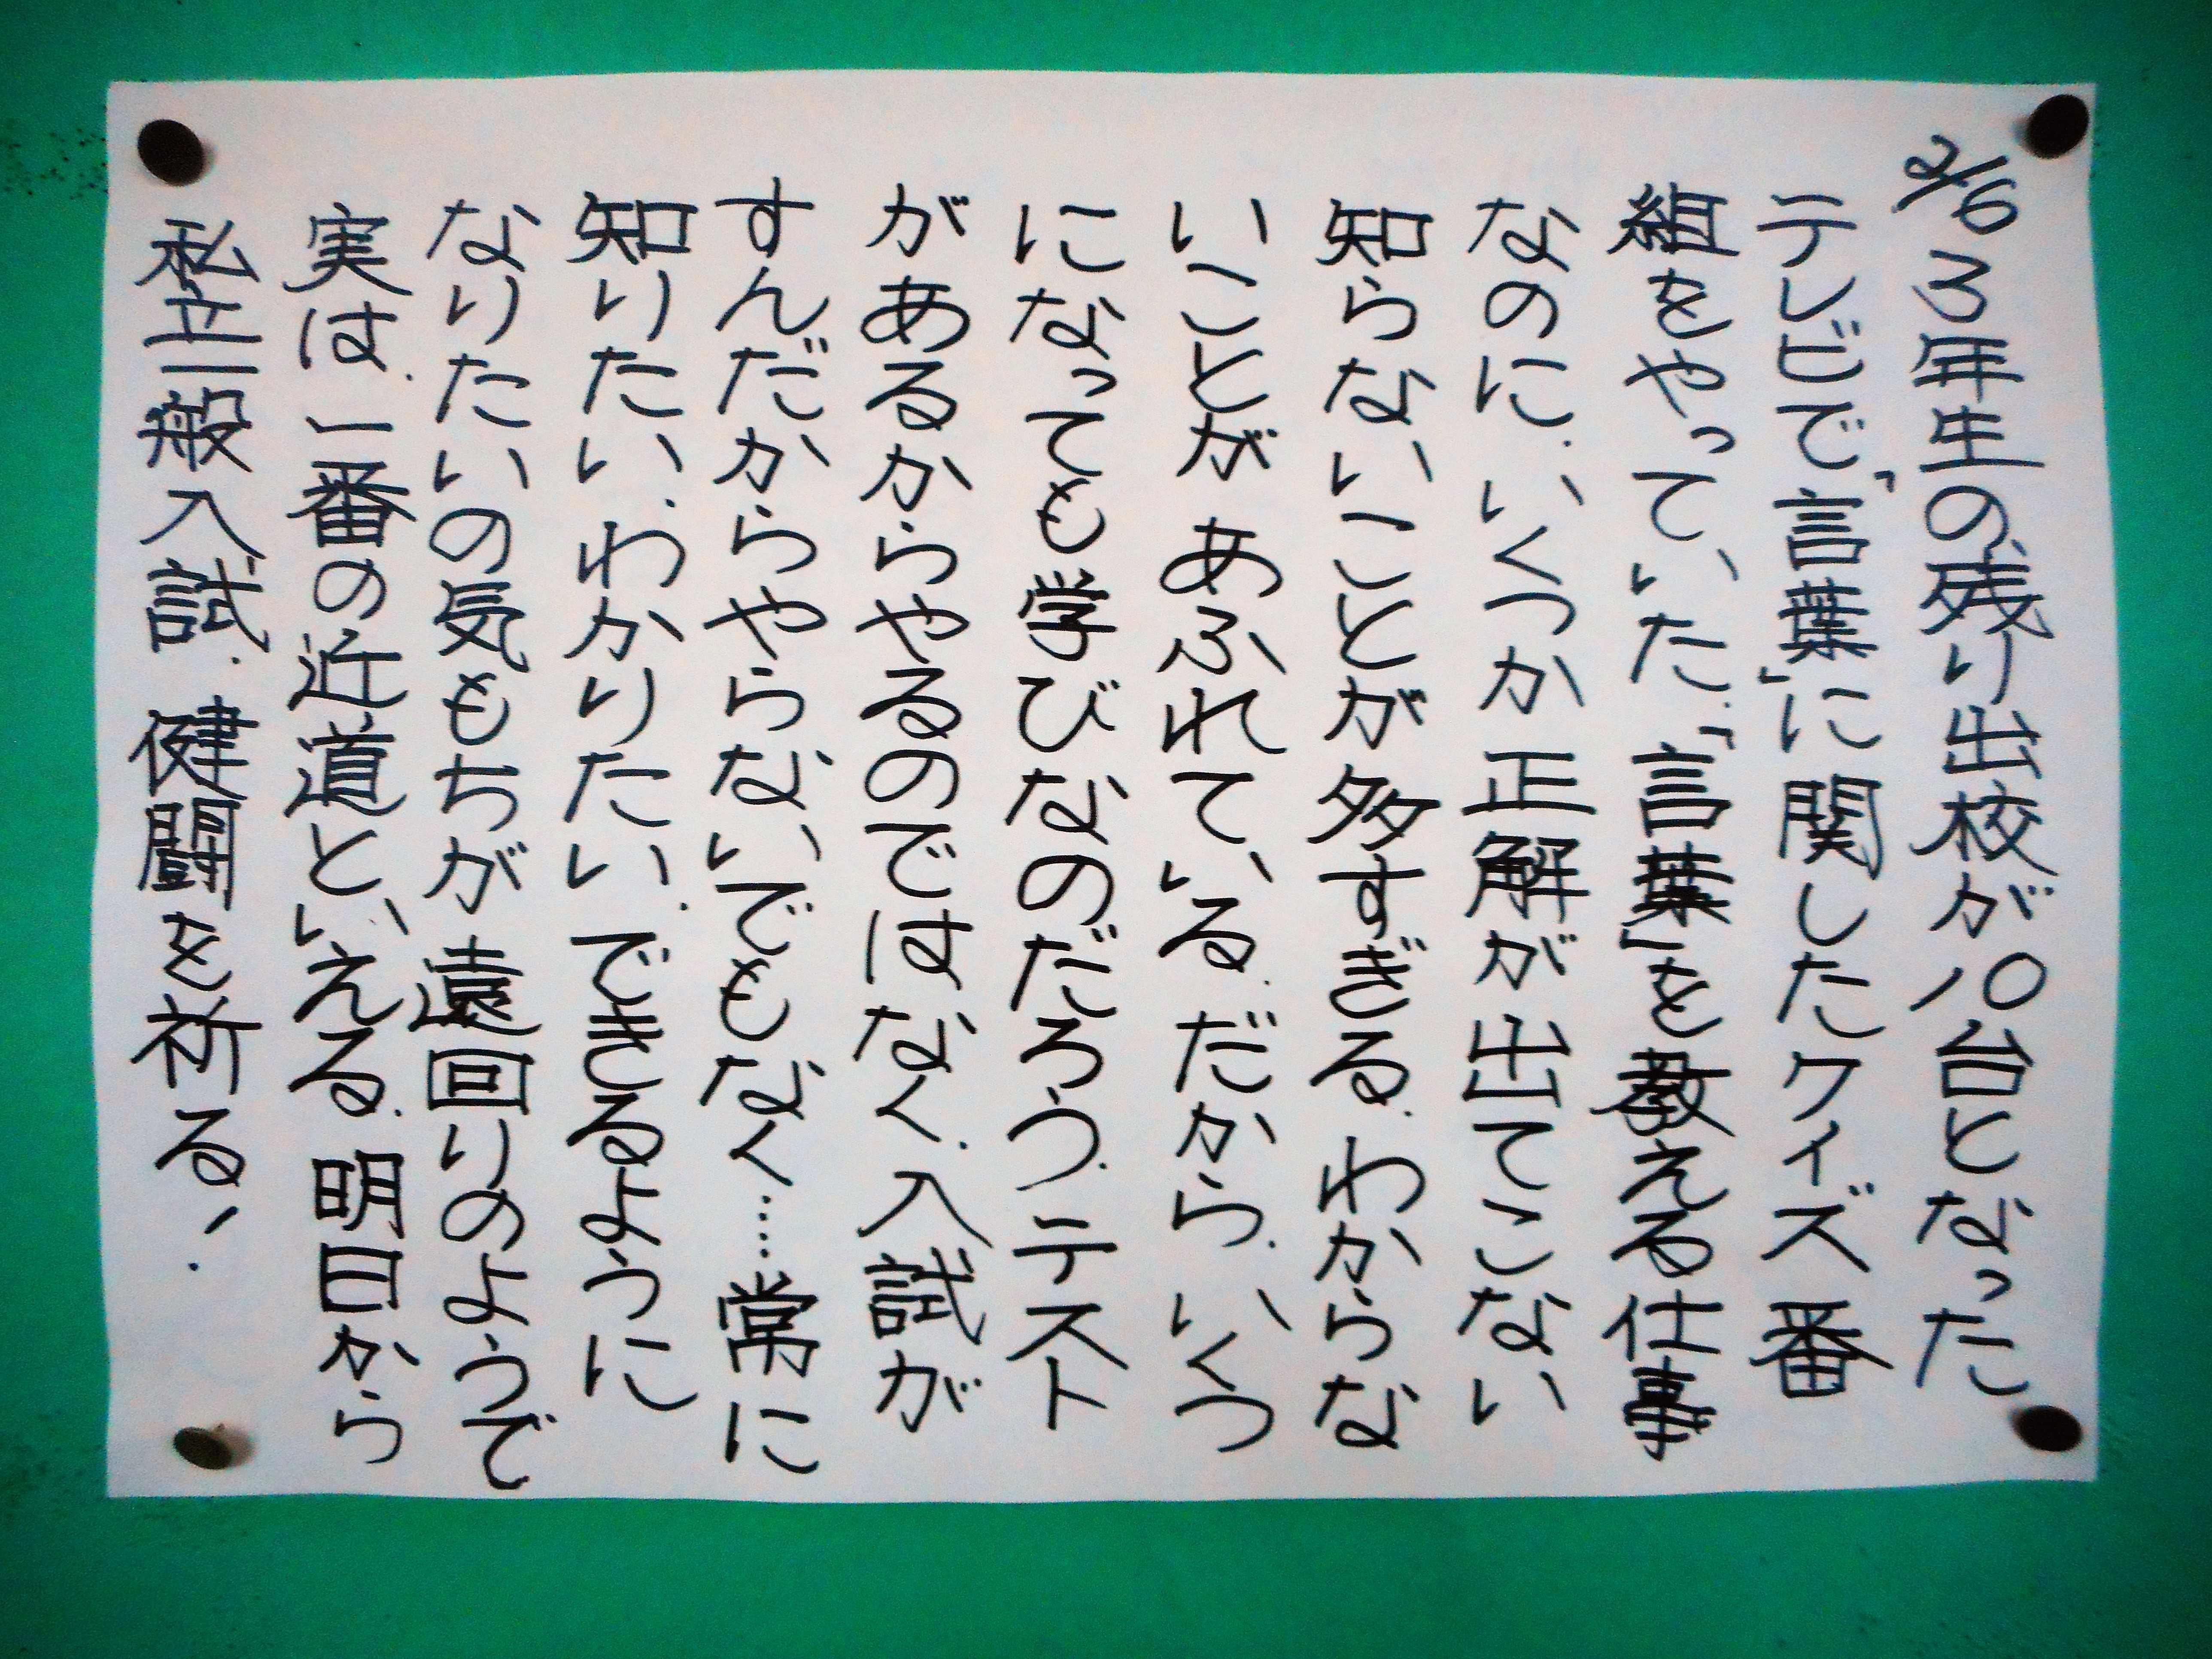 2/6 3年生の残り出校が10台となった
テレビで「言葉」に関したクイズ番
組をやっていた。「言葉」を教える仕事
なのに、いくつか正解が出てこない
知らないことが多すぎる。わからな
いことがあふれている。だから、いくつ
になっても学びなのだろう。テスト
があるからやるのではなく、入試が
すんだからやらないでもなく……常に
知りたい、わかりたい、できるように
なりたいの気もちが遠回りのようで
実は、一番の近道といえる。明日から
私立一般入試、健闘を祈る!